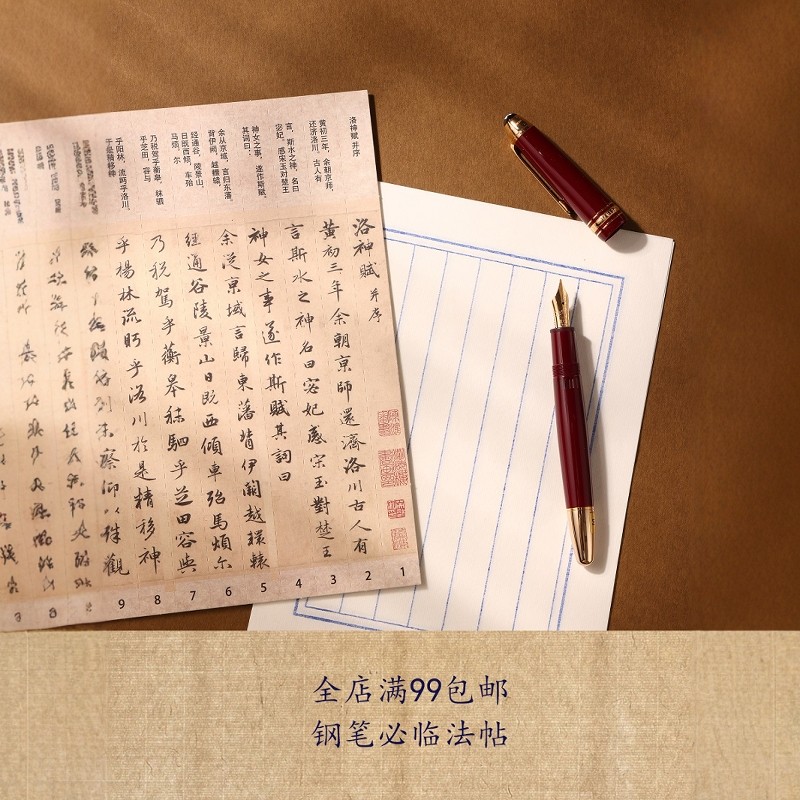 洛神赋 并序
黄初三年，余朝京师，
还济洛川。古人有
言，斯水之神，名曰
宓妃。感宋玉对楚王
神女之事，遂作斯赋，
其词曰：
余从京域，言归东藩，
背伊阙，越轘辕，
经通谷，陵景山。
日既西倾，车殆
马烦。尔
乃税驾乎蘅皋，秣驷
乎芝田，容与
乎阳林，流眄乎洛川。
于是精移神
洛神賦 并序
黄初三年余朝京師還濟洛川古人有
言斯水之神名曰宓妃感宋玉對楚王
神女之事遂作斯賦其詞曰
余從京域言歸東藩背伊闕越轘轅
經通谷陵景山日既西傾車殆馬煩尔
乃税駕乎蘅皋秣駟乎芝田容與
乎楊林流眄乎洛川於是精移神
未察仰以殊觀
1
2
3
4
5
6
7
8
9
全店满99包邮
钢笔必临法帖